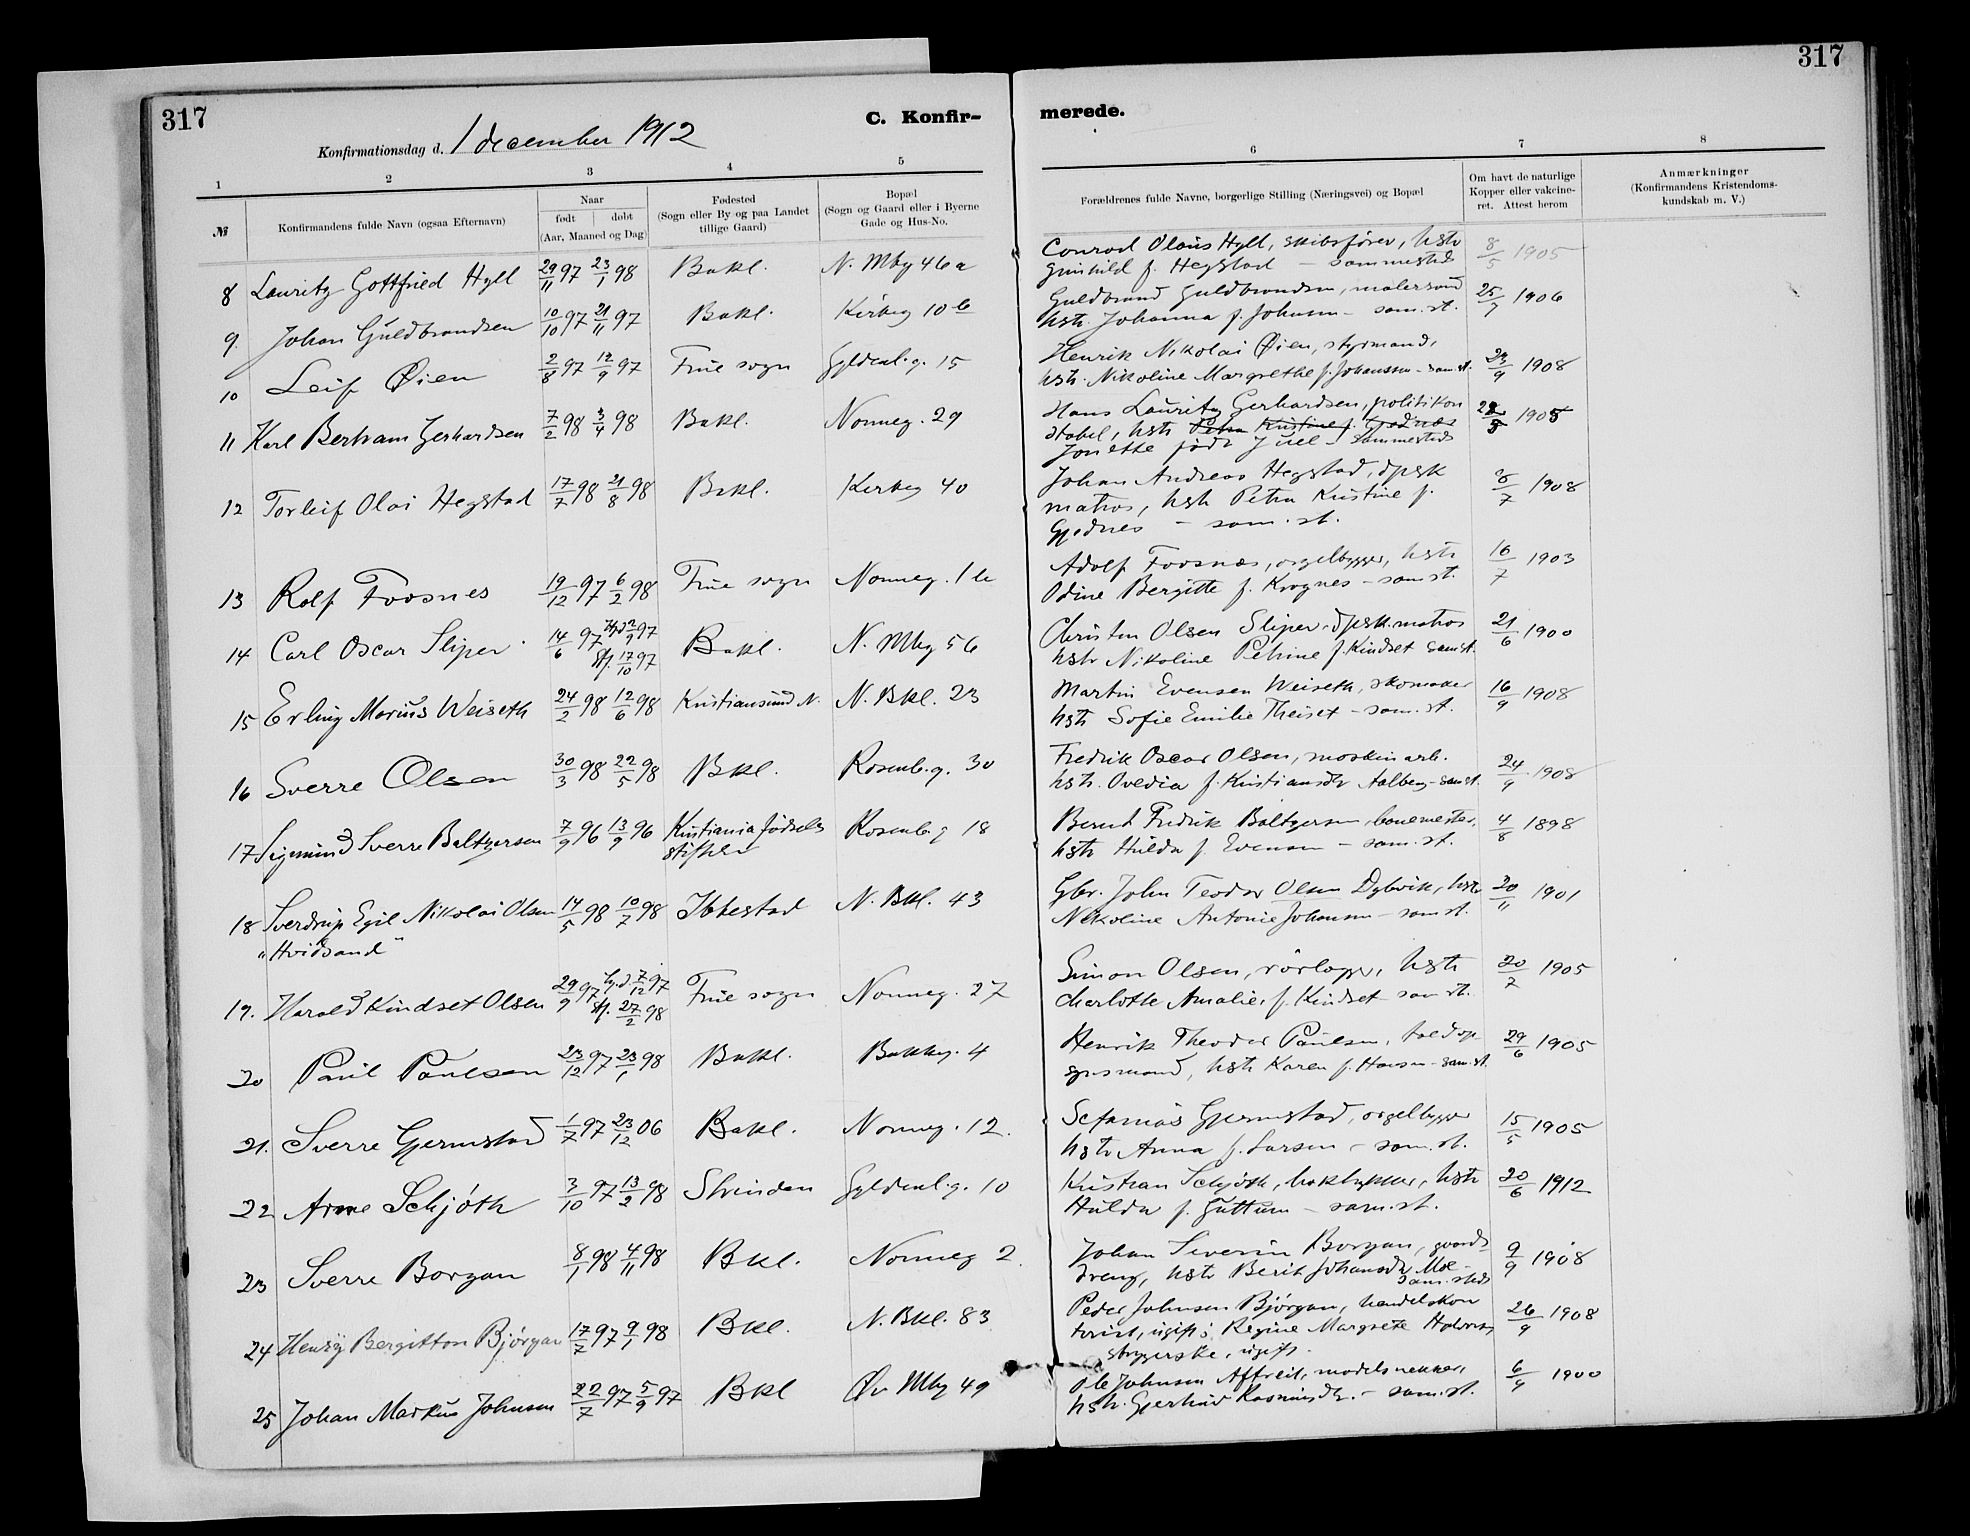 317
317
C. Konfir-
merede.
Konfirmationsdag d. 1 december 1912
1 2 3 4 5 6 7 8
№
Konfirmandens fulde Navn (ogsaa Efternavn)
Naar
født døbt
(Aar, Maaned og Dag)
Fødested
(Sogn eller By og paa Landet
tillige Gaard)
Bopæl
(Sogn og Gaard eller i Byerne
Gade og Hus-No.
Forældrenes fulde Navne, borgerlige Stilling (Næringsvei) og Bopæl
Om havt de naturlige
Kopper eller vakcine-
ret. Attest herom
Anmærkninger
(Konfirmandens Kristendoms-
kundskab m. V.)
8 Lauritz Gottfried Hyll 29/11 97 23/1 98 Bakl. N. Mbg 46a
Conrad Olaus Hyll, skibsfører, hstr
Gunhild f. Hegstad – sammesteds
8/5 1905
9. Johan Guldbrandsen 10/10 97 21/11 97 Bakl. Kirkeg 10 b
Guldbrand Guldbrandsen, malersvend
hstr. Johanna f. Johnsen – sam.st.
25/7 1906
10 Leif Øien 2/8 97 12/9 97 Frue sogn Gyldenl.g. 15
Henrik Nikolai Øien, styrmand,
hstr. Nikoline Margrethe f. Johanssen – sam.st.
1908
11 Karl Bertram Gerhardsen 7/2 98 3/4 98 Bakl. Nonneg. 29
Hans Lauritz Gerhardsen, politikon
stabel, hstr Petra Kristine f. Gjednes
Jonette født Juel – sammesteds
1905
12 Torleif Olai Hegstad 17/7 98 21/8 98 Bakl. Kirkeg 40
Johan Andreas Hegstad, dpsk
matros, hstr Petra Kristine f.
Gjednes – sam.st.
8/7 1908
13 Rolf Foosnes 19/12 97 6/2 98 Frue sogn Nonneg. 1 b
Adolf Foosnæs, orgelbygger, hstr
Odine Bergitte f. Krognes – sam st.
16/7 1903
14 Carl Oscar Sliper 14/6 97 hjd 2/9 97
stf. 17/10 97 Bakl. N. Mbg 56
Christen Olsen Sliper, dpsk.matros
hstr Nikoline Petrine f. Kindset samst.
21/6 1900
15 Erling Marius Weiseth 24/2 98 12/6 98 Kristiansund N. N. Bkl. 23
Martin Evensen Weiseth, skomaker
hstr Sofie Emilie Theiset – sam.st.
16/9 1908
16 Sverre Olsen 30/3 98 22/5 98 Bkl. Rosenb.g. 30
Fredrik Oscar Olsen, maskinarb.
hstr. Ovedia f. Kristiansdtr Aalberg – samst.
24/9 1908
17 Sigmund Sverre Baltzersen 7/9 96 13/9 96 Kristiania fødsels
stiftelse Rosenb.g 18
Bernt Fredrik Baltzersen, banemester,
hstr Hulda f. Evensen – sam.st.
4/8 1898
18 Sverdrup Egil Nikolai Olsen 14/5 98 10/7 98 Ibbestad N. Bkl. 43
"Hvidsand"
Gbr. John Teodor Olsen Dybvik, hstr
Nikoline Antonie Johansen – samst.
30/11 1901
19. Harald Kindset Olsen 29/9 97 hj.d 7/12 97
stf. 27/2 98 Frue sogn Nonneg. 27
Simon Olsen, rørlægger, hstr
Charlotte Amalie, f. Kindset – sam st.
20/7 1905
20 Paul Paulsen 23/12 97 23/1 98 Bakl. Bakkeg. 4
Henrik Theodor Paulsen, toldop
synsmand, hstr Karen f. Hansen – sam.st.
29/6 1905
21. Sverre Gjermstad 1/7 97 23/12 06 Bakl. Nonneg. 12.
Sefanias Gjermstad, orgelbygger
hstr Anna f. Larsen – sam.st.
15/5 1905
22 Arne Schjøth 3/10 97 13/2 98 Strinden Gyldenl.g. 10
Kristian Schjøth, boktrykker, hstr
Hulda f. Guttum – sam.st.
20/6 1912
23 Sverre Borgan 8/1 98 4/11 98 Bkl. Nonneg 2.
Johan Severin Borgan, gaards
dreng, hstr Berit Johansdtr Moe –
sam.steds
9/9 1908
24 Henry Bergitton Bjørgan 17/7 97 9/1 98 Bkl. N. Bkl. 83
Peder Johnsen Bjørgan, handelskon
torist, ugift; Regine Margrete Halvorsen
strygerske, ugift.
26/9 1908
25 Johan Markus Johnsen 22/7 97 5/9 97 Bkl Øv Mbg 49
Ole Johnsen Affreit, modelsnekker,
hstr. Gjerhard Rasmusdtr. – sam.st.
6/9 1900